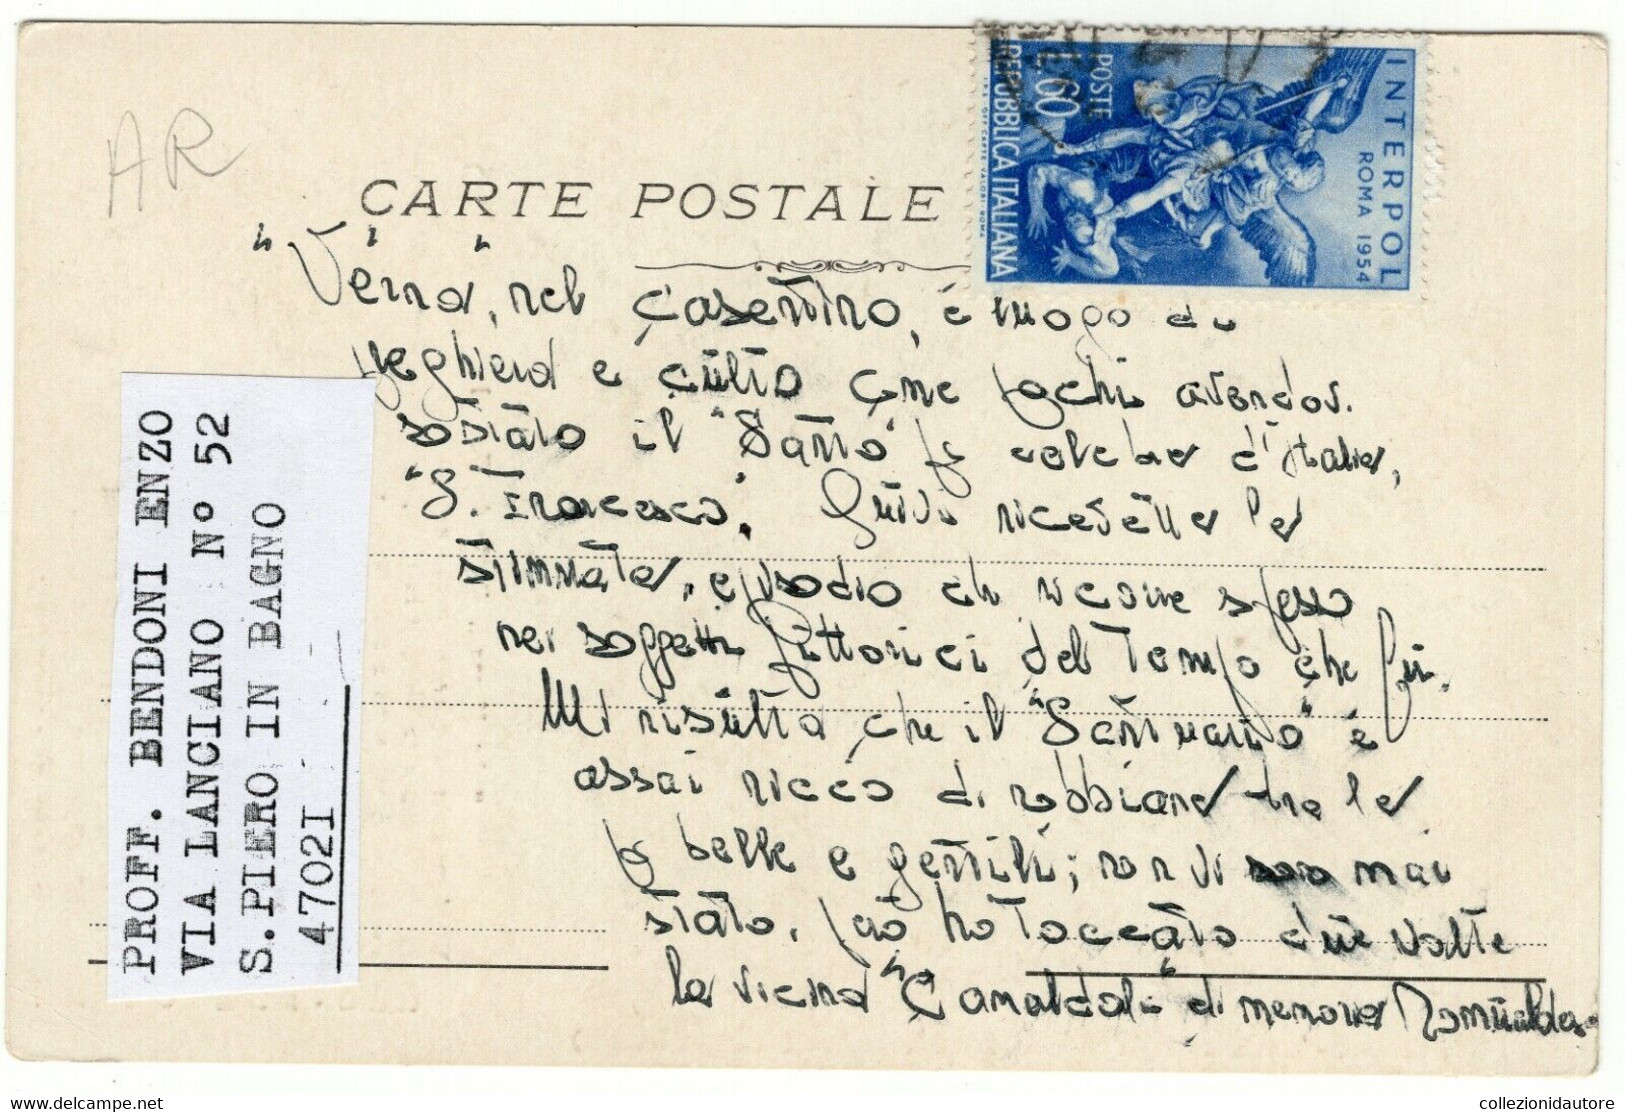 AR
CARTE POSTALE
INTERPOL
ROMA 1954
POSTE
L.60
REPUBBLICA ITALIANA
I.P.S. OFF. CARTE VALORI-ROMA
"Verna", nel Casentino, è luogo di
preghiera e culto come pochi avendov.
sostato il "Santo" d'Italia,
"S. Francesco". Quivi ricevette le
stimmate, episodio che ricorre spesso
nei soggetti pittorici del Tempo che fu.
Mi risulta che il "Santuario" è
assai ricco di robbiane tra le
più belle e gentili; non vi sono mai
stato, però ho toccato due volte
la vicina "Camaldoli" di memoria Romualda.
PROFF. BENDONI ENZO
VIA LANCIANO N° 52
S.PIERO IN BAGNO
4702I
delcampe.net
collezionidautore